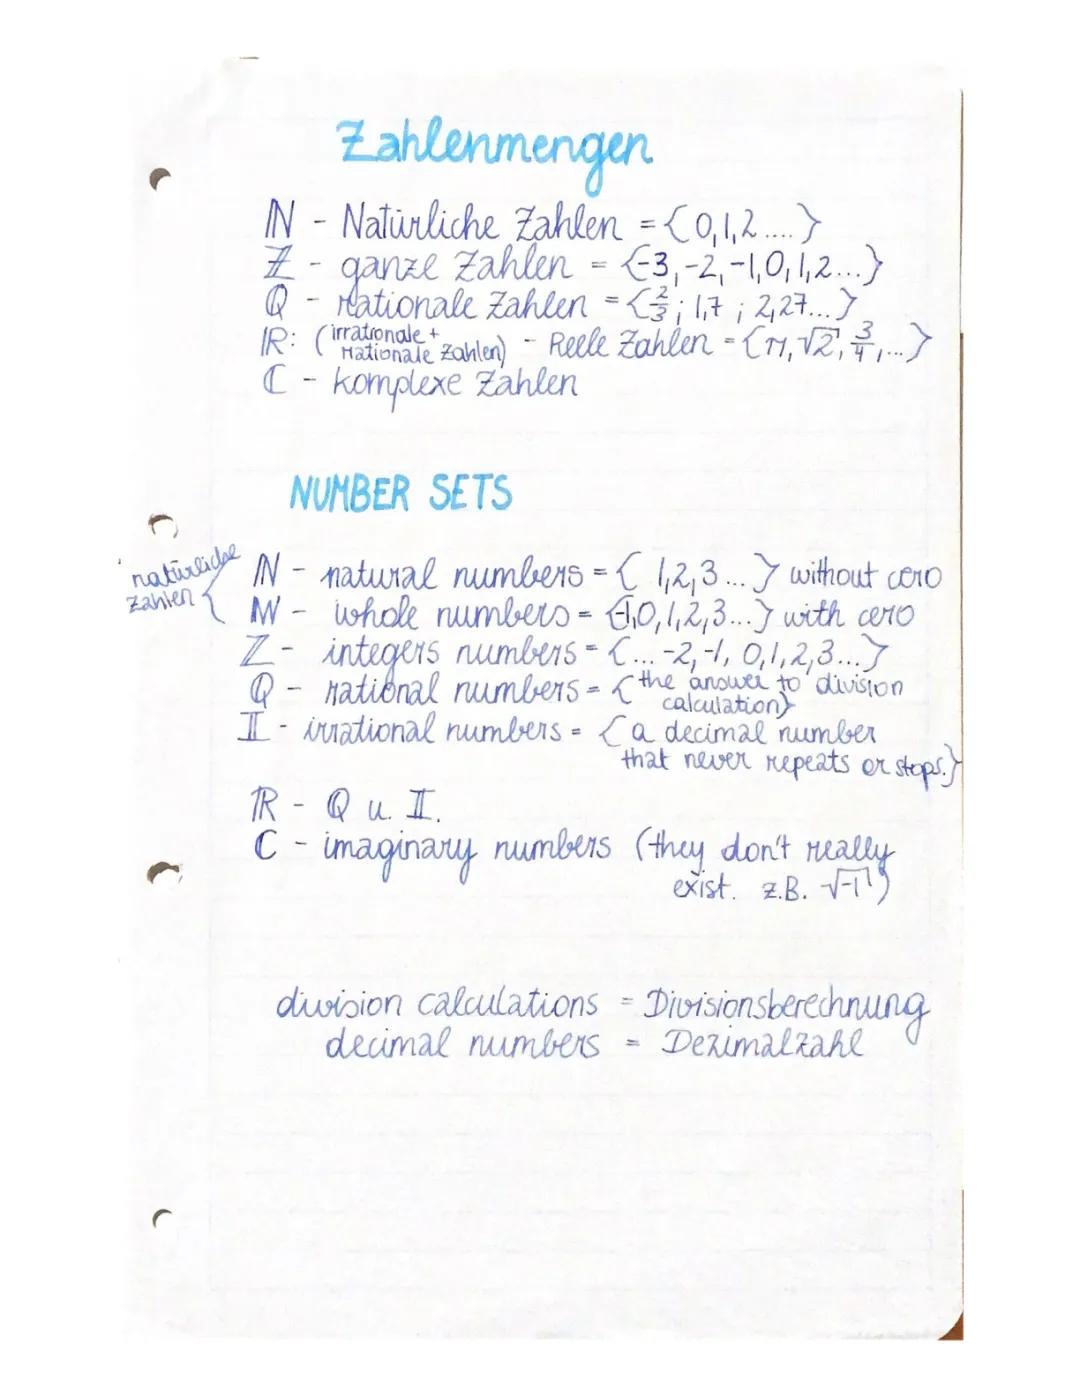 Zahlenmengen
ℕ - Natürliche Zahlen = {0,1,2....}
ℤ - ganze Zahlen = {-3,-2,-1,0,1,2...}
ℚ - rationale Zahlen = {2/3; 1,7; 2,27...}
ℝ: (irrationale + rationale Zahlen) - Reele Zahlen = {π, √2, 3/4,...}
ℂ - komplexe Zahlen
NUMBER SETS
natürliche
Zahlen {
ℕ - natural numbers = { 1,2,3...} without cero
W - whole numbers = {-1,0,1,2,3...} with cero
ℤ - integers numbers = {... -2,-1, 0,1,2,3...}
ℚ - rational numbers = {the answer to division
calculation}
𝕀 - irrational numbers = {a decimal number
that never repeats or stops.}
ℝ - ℚ u. 𝕀.
ℂ - imaginary numbers (they don't really
exist. z.B. √-1)
division calculations = Divisionsberechnung
decimal numbers = Dezimalzahl